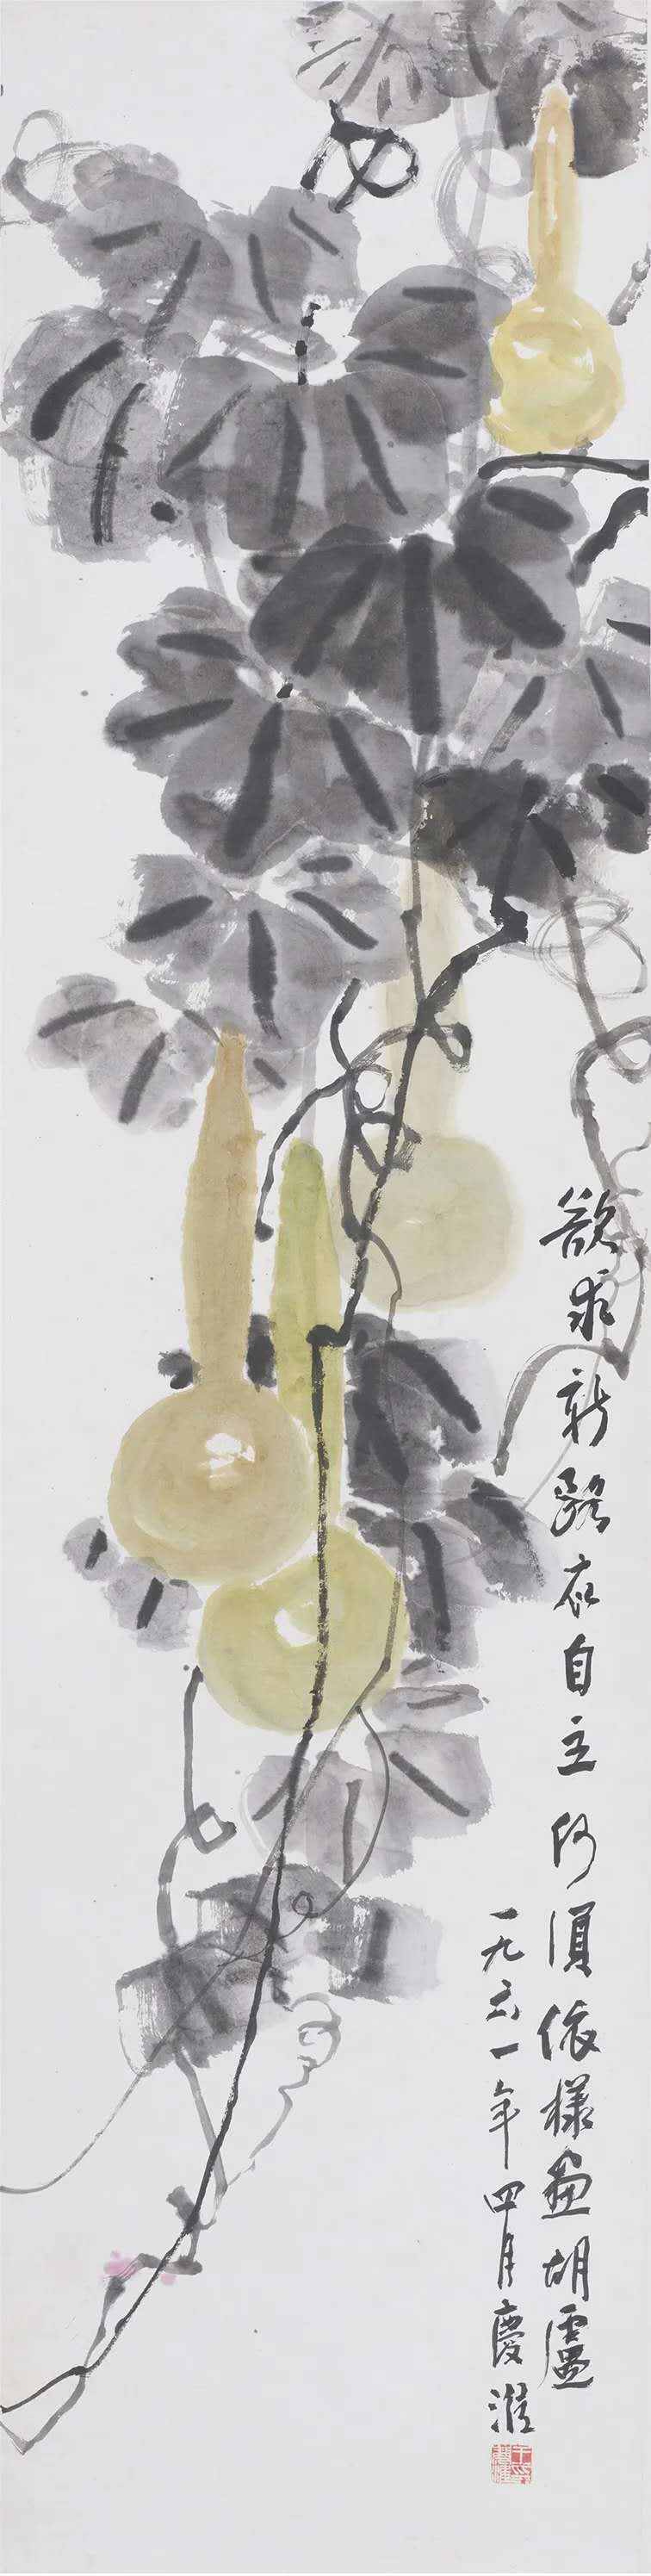 欲求新路在自主何須依樣畫胡盧
一九六一年四月慶淮